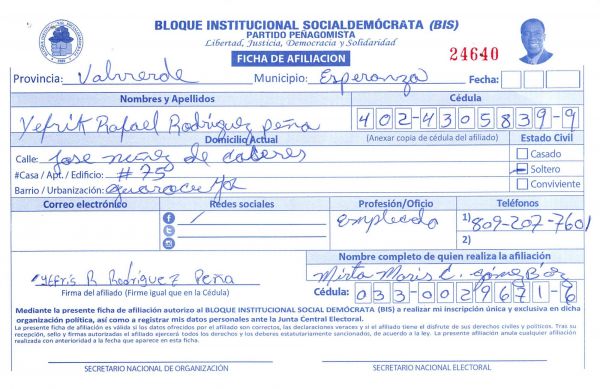 BLOQUE INSTITUCIONAL SOCIALDEMÓCRATA (BIS)
PARTIDO PEÑAGOMISTA
Libertad, Justicia, Democracia y Solidaridad
FICHA DE AFILIACION
24640
Provincia: Valverde Municipio: Esperanza Fecha:
Nombres y Apellidos Cédula
Yefrit Rafael Rodríguez Peña 402-4305839-9
Domicilio Actual (Anexar copia de cédula del afiliado) Estado Civil
Calle: Jose nuñez de caceres Casado
#Casa / Apt. / Edificio: #75 Soltero
Barrio / Urbanización: Conviviente
Correo electrónico Redes sociales Profesión/Oficio Teléfonos
Empleado 1) 809-207-7601
2)
Nombre completo de quien realiza la afiliación
Yefris R Rodriguez Peña Mirta Maris C. Gómez
Firma del afiliado (Firme igual que en la Cédula) Cédula: 033-0029671-6
Mediante la presente ficha de afiliación autorizo al BLOQUE INSTITUCIONAL SOCIAL DEMÓCRATA (BIS) a realizar mi inscripción única y exclusiva en dicha
organización política, así como a registrar mis datos personales ante la Junta Central Electoral.
La presente ficha de afiliación es válida si los datos ofrecidos por el afiliado son correctos, las declaraciones veraces y si el afiliado tiene el disfrute de sus derechos civiles y políticos. Tras su
recepción, sello y firmas autorizadas el afiliado ejercerá todos los derechos y los deberes estatutariamente sancionados, de acuerdo a la ley. La presente afiliación anula cualquier afiliación
realizada con anterioridad a la fecha que aparece en esta ficha.
SECRETARIO NACIONAL DE ORGANIZACIÓN SECRETARIO NACIONAL ELECTORAL